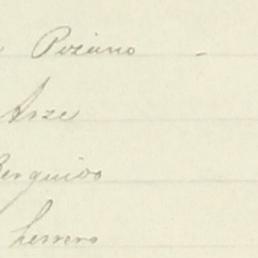 Poziano -
Arze
Berguido
Herrero